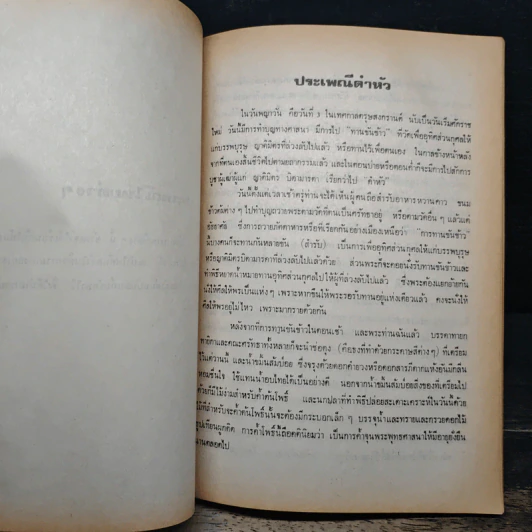 ประเพณีดำหัว
ในวันพญาวัน คือวันที่ 3 ในเทศกาลตรุษสงกรานต์ นับเป็นวันเริ่มศักราช
ใหม่ วันนี้มีการทำบุญทางศาสนา มีการไป "ทานขันข้าว" ที่วัดเพื่ออุทิศส่วนกุศลให้
แก่บรรพบุรุษ ญาติมิตรที่ล่วงลับไปแล้ว หรือทานไว้เพื่อตนเอง ในกาลข้างหน้าหลัง
จากที่ตนเองสิ้นชีวิตไปตามยถากรรมแล้ว และในตอนบ่ายหรือตอนค่ำก็จะมีการไปสักการ
บูชาผู้เฒ่าผู้แก่ ญาติมิตร บิดามารดา เรียกว่าไป " ดำหัว
วันนี้ตั้งแต่เวลาเช้าตรู่ท่านจะได้เห็นผู้คนถือสำรับอาหารหวานคาว ขนม
ข้าวต้มต่าง ๆ ไปทำบุญถวายพระตามวัดที่ตนเป็นศรัทธาอยู่ หรือตามวัดอื่น ๆ แล้วแต่
อัธยาศัย ซึ่งการถวายภัตตาหารหรือที่เรียกกันอย่างเมืองเหนือว่า "การทานขันข้าว"
นี้บางคนก็จะทานกันหลายขัน (สำรับ) เป็นการเพื่ออุทิศส่วนกุศลให้แก่บรรพบุรุษ
หรือญาติมิตรบิดามารดาที่ล่วงลับไปแล้วด้วย ส่วนพระก็จะคอยนั่งรับทานขันข้าวและ
ทำพิธีหยาดน้ำหมายทานอุทิศส่วนกุศลไปให้ผู้ที่ล่วงลับไปแล้ว ซึ่งพระต้องแยกย้ายกัน
นั่งให้ศีลให้พรเป็นแห่ง ๆ เพราะหากขืนให้พระรอรับทานอยู่แห่งเดียวแล้ว คงจะนั่งให้
ศีลให้พรอยู่ไม่ไหว เพราะมากรายด้วยกัน
หลังจากที่การทานขันข้าวในตอนเช้า และพระท่านฉันแล้ว บรรดาทายก
ทายิกาและคณะศรัทธาทั้งหลายก็จะนำช่อตุง (คือธงที่ทำด้วยกระดาษสีต่าง ๆ) ที่เตรียม
ไว้แต่วานนี้ และน้ำขมิ้นส้มป่อย ซึ่งจรุงด้วยดอกคำยวงหรือดอกสารภีตากแห้งอันมีกลิ่น
หอมชื่นใจ ใช้แทนน้ำอบไทยได้เป็นอย่างดี นอกจากน้ำขมิ้นส้มป่อยส่งของที่เตรียมไป
ด้วยก็มีไม้ง่ามสำหรับค้ำต้นโพธิ์ และนกปลาที่ทำพิธีปล่อยสะเดาะเคราะห์ในวันนี้ด้วย
ไม้ที่สำหรับจะค้ำต้นโพธิ์นั้นจะต้องมีกระบอกเล็ก ๆ บรรจุน้ำและทรายและกรวยดอกไม้
ธูปเทียนผูกติด การค้ำโพธิ์นี้ถือคตินิยมว่า เป็นการค้ำจุนพระพุทธศาสนาให้มีอายุยั่งยืน
นานตลอดไป